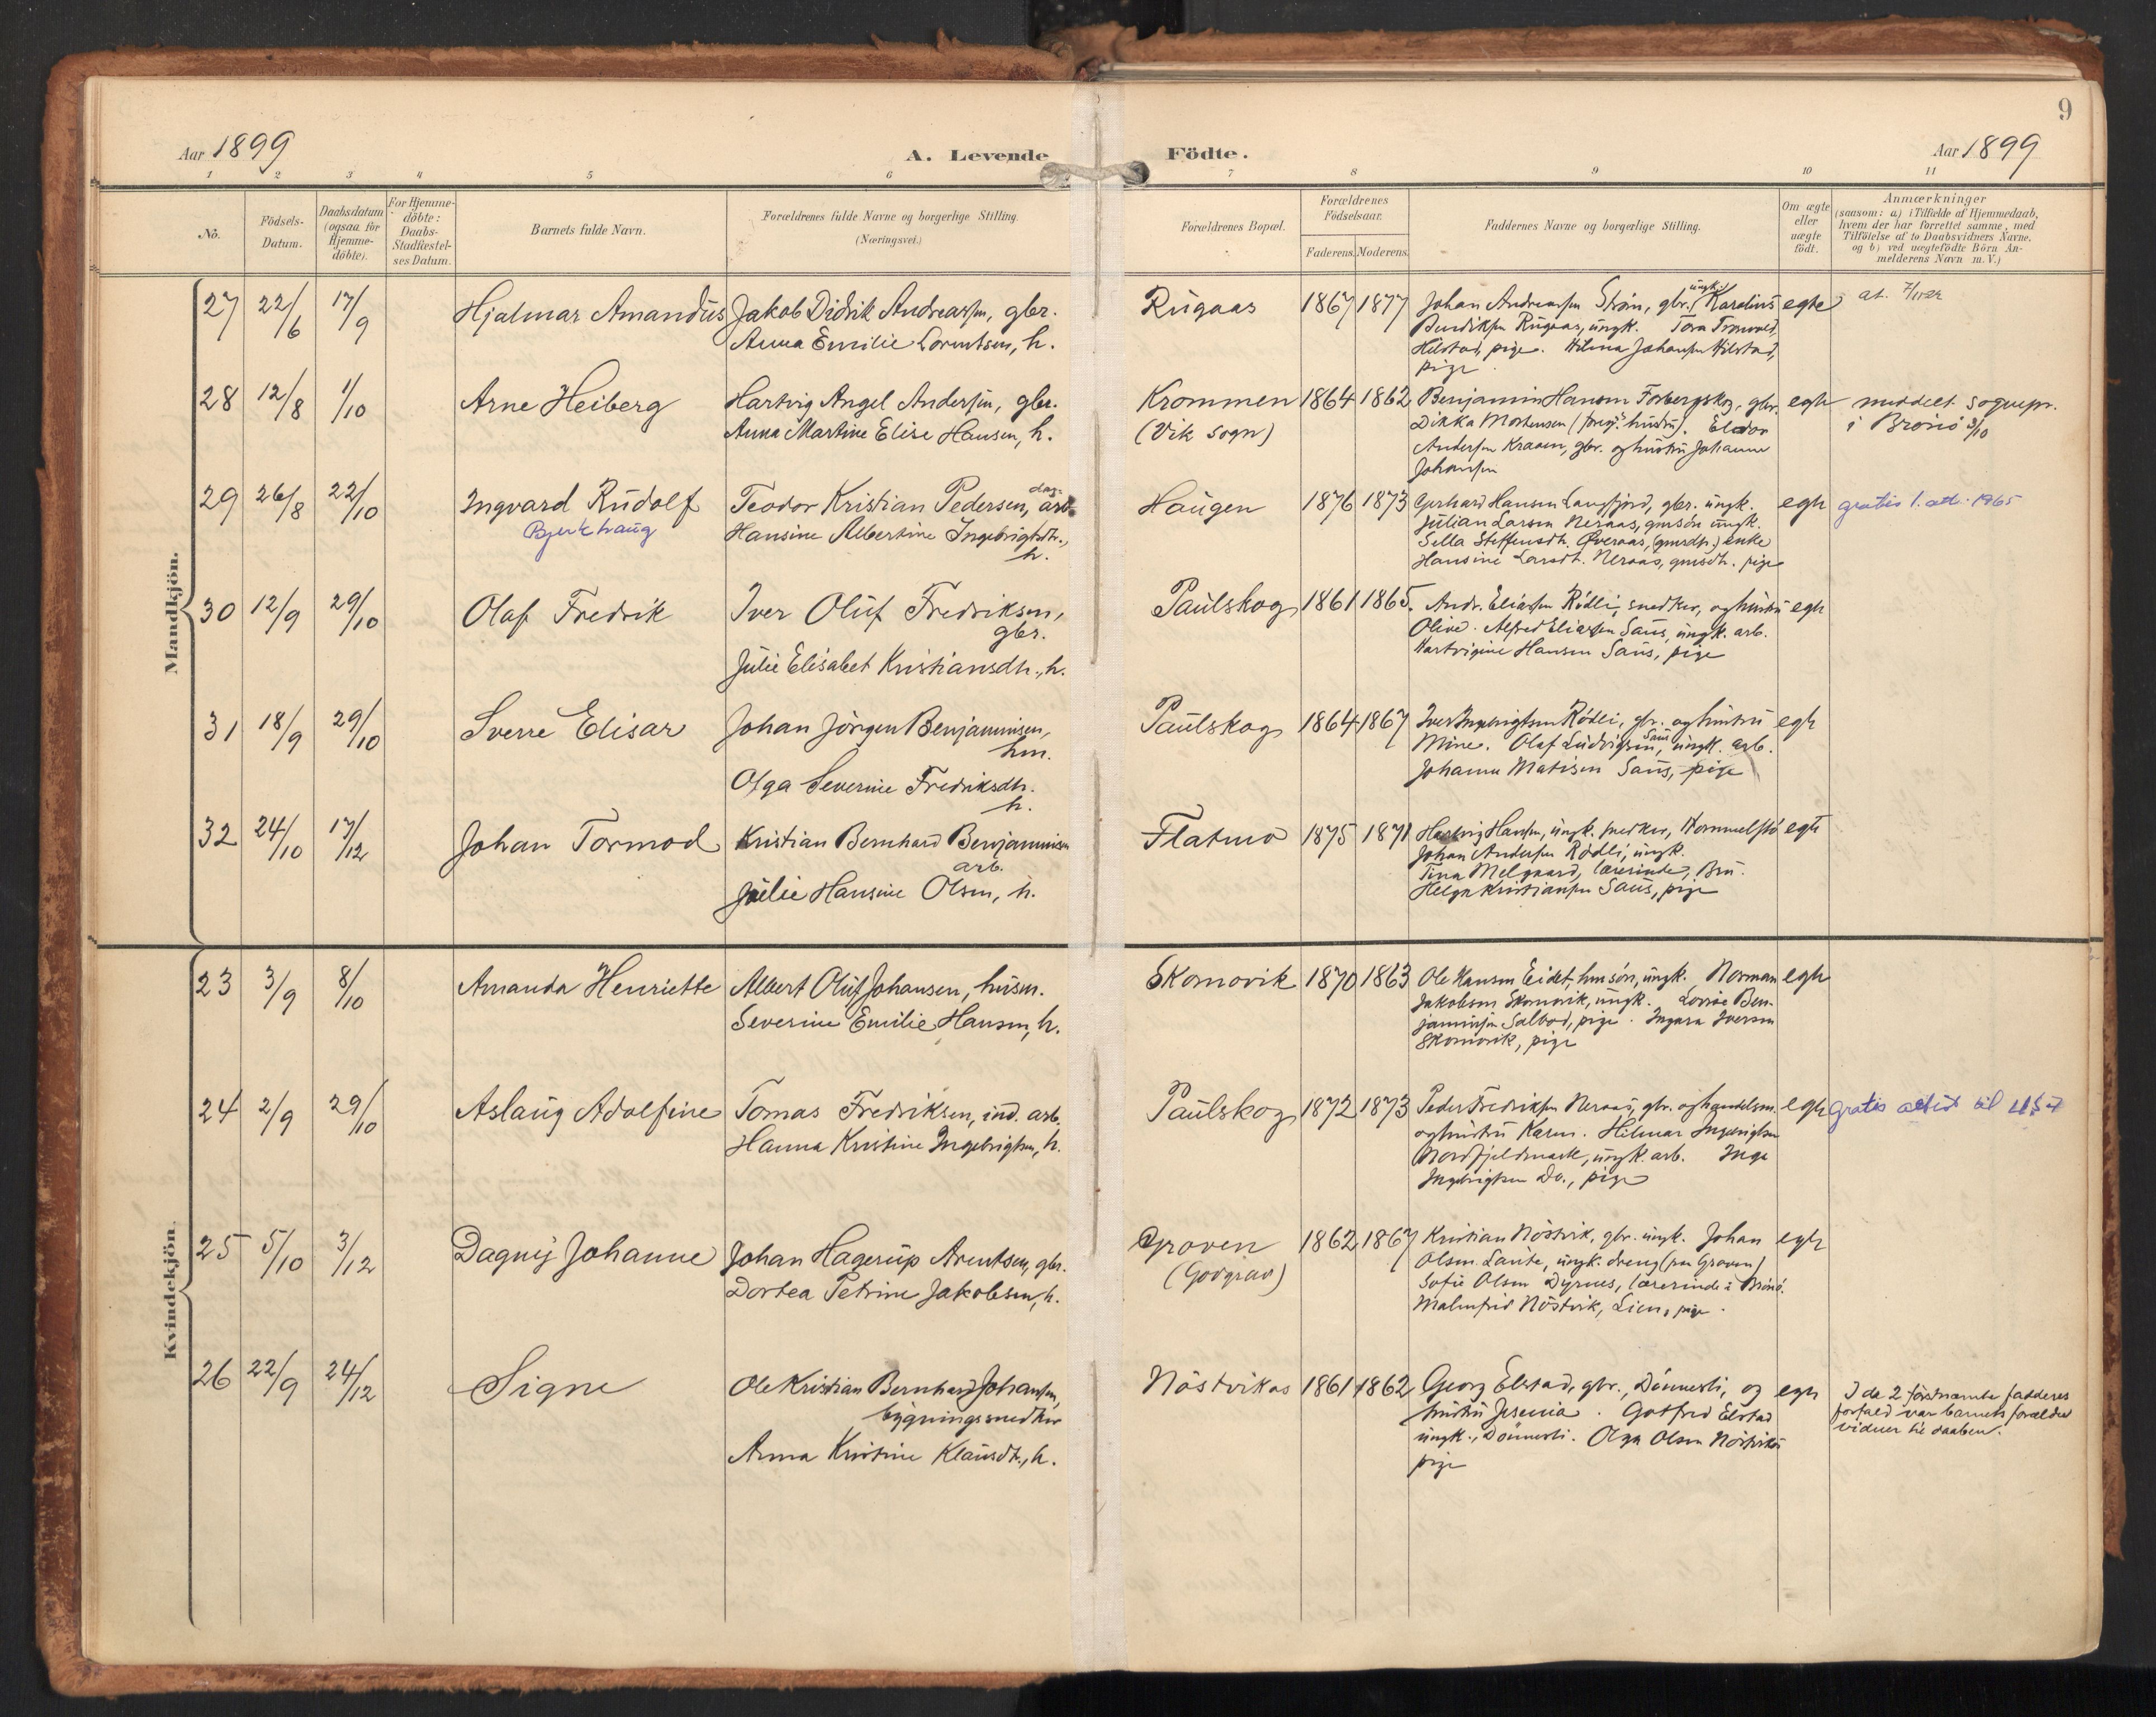 9
Aar 1899
A. Levende Födte.
Aar 1899
1 2 3 4 5 6 7 8 9 10 11
No.
Födsels-Datum.
Daabsdatum (ogsaa for Hjemme-döbte).
For Hjemme-döbte: Daabs-Stadfæstel-ses Datum.
Barnets fulde Navn.
Forældrenes fulde Navne og borgerlige Stilling.
(Næringsvei.)
Forældrenes Bopæl.
Forældrenes Födselsaar.
Faderens. Moderens.
Faddernes Navne og borgerlige Stilling.
Om ægte eller uægte födt.
Anmærkninger
(saasom: a) i Tilfælde af Hjemmedaab,
hvem der har forrettet samme, med
Tilföielse af to Daabsvidners Navne,
og b) ved uægtefödte Börn An-
melderens Navn m. V.)
Mandkjön.
27 22/6 17/9 Hjalmar Amandus Jakob Didrik Andreassen, gbr.
Anna Emilie Lorentsen, h.
Rugaas 1867 1877 Johan Andreassen Strøm, gbr. Karolius
ungk.
Rugaas, ungk. Tora
Hilstad, pige. Hilma Johansen Hilstad,
pige
egte
at.
28 12/8 1/10 Arne Heiberg Hartvig Angel Andersen, gbr.
Anna Martine Elise Hansen, h.
Krommen 1864 1862
(Vik sogn)
Benjamin Hansen Forbergskog, gbr.
Dikka Mortensen (forrigs hustru). Eldor
Andersen Kraaen, gbr. og hustru Johanna
Johansen
egte
meddelt sognepr.
i Brönö 3/10
29 26/8 22/10 Ingvard Rudolf
Bjerkhaug
Teodor Kristian Pedersen, dag-
arb.
Hansine Albertine Ingebrigtsdtr.,
h.
Haugen 1876 1873 Gerhard Hansen Langfjord, gbr. ungk.
Julian Larsen Neraas, gmsön ungk.
Sella Steffensdtr. Øveraas, (gmsdtr.) enke
Hansine Larsdtr. Neraas, gmsdtr. pige
egte
gratis l. att. 1965
30 12/9 29/10 Olaf Fredrik Iver Oluf Fredriksen,
gbr.
Julie Elisabet Kristiansdtr., h.
Paulskog 1861 1865. Andr. Eliassen Rödli, snedker, og hustru
Olive. Alfred Eliassen Saus, ungk. arb.
Hartvigine Hansen Saus, pige
egte
31 18/9 29/10 Sverre Elisar Johan Jörgen Benjaminsen,
hm.
Olga Severine Fredriksdtr.
h.
Paulskog 1864 1867 Iver Ingebrigtsen Rödli, gbr. og hustru
Mine. Olaf Ludvigsen Saus, ungk. arb.
Johanna Matisen Saus, pige
egte
32 24/10 17/12 Johan Tormod Kristian Bernhard Benjaminsen
arb.
Julie Hansine Olsen, h.
Flatmo 1875 1871 Hartvig Hansen, ungk. snedker, Hommelstö
Johan Andersen Rödli, ungk.
Tina Melgaard, lærerinde, Brö.
Helga Kristiansen Saus, pige
egte
Kvindekjön.
23 3/9 8/10 Amanda Henriette Albert Oluf Johansen, husm.
Severine Emilie Hansen, h.
Skomovik 1870 1863 Ole Hansen Eidet, hmsön, ungk. Norman
Jakobsen Skomovik, ungk. Lovise Ben-
jaminsen Salbod, pige. Ingara Iversen
Skomovik, pige
egte
24 2/9 29/10 Aslaug Adolfine Tomas Fredriksen, ind. arb.
Hanna Kristine Ingebrigtsen, h.
Paulskog 1872 1873 Peder Fredriksen Neraas, gbr. og handelsm.
og hustru Karen. Hilmar Ingebrigtsen
Nordfjeldmark, ungk. arb. Inga
Ingebrigtsen Do., pige
egte
gratis attest til
25 5/10 3/12 Dagny Johanne Johan Hagerup Arentsen, gbr.
Dortea Petrine Jakobsen, h.
Groven 1862 1867
(Godgrav)
Kristian Nöstvik, gbr. ungk. Johan
Olsen Lante, ungk. dreng (paa Groven)
Sofie Olsen Dyrnes, lærerinde i Brönö.
Malmfrid Nöstvik, Lien, pige.
egte
26 22/9 24/12 Signe Ole Kristian Bernhard Johansen,
bygningssnedker
Anna Kristine Klausdtr., h.
Nöstvikas 1861 1862 Georg Elstad, gbr., Dönnesli, og
hustru Jesenia. Gotfred Elstad
ungk., Dönnesli. Olga Olsen Nöstvikas
pige
egte
I de 2 förstnævnte fadderes
forfald var barnets forældre
vidner til daaben.